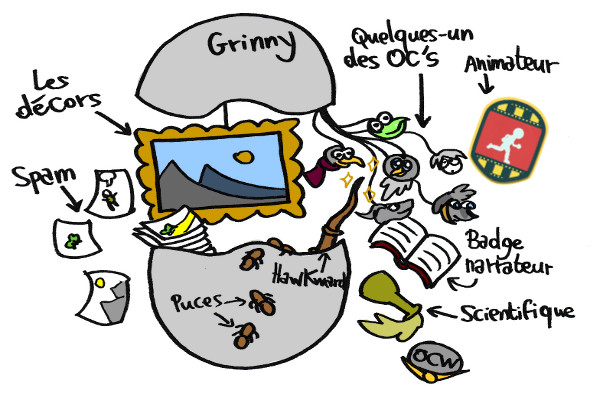 Grinny
Quelques-un
des OC's
Animateur
Les
décors
Spam
Hawkward
Puces
Badge
narrateur
Scientifique
OCW